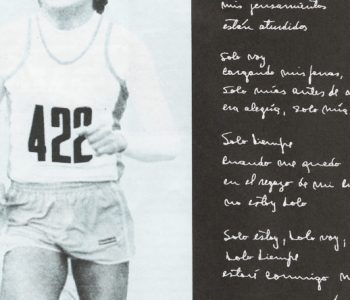 422
mis pensamientos
están aturdidos
Solo voy
cargando mis penas,
solo mías antes de
era alegría, solo
Solo siempre
cuando me quedo
en el regazo de mi
no estoy solo
Solo estoy, solo voy,
solo siempre
estaré conmigo